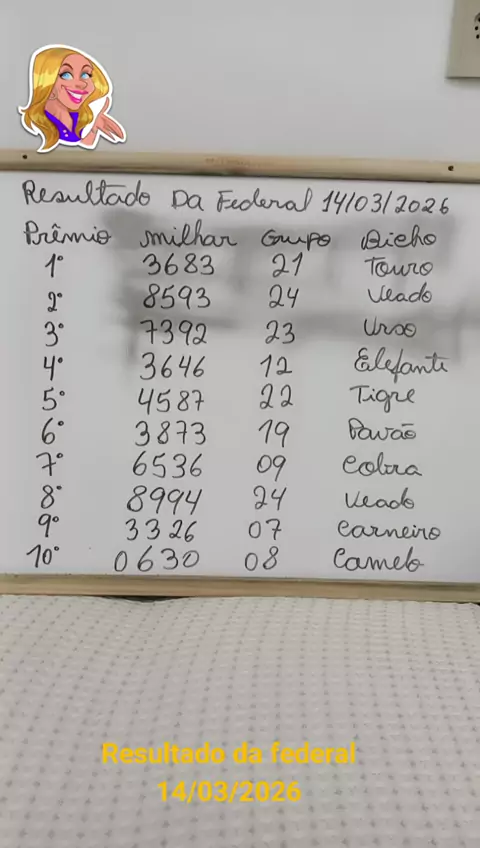 Resultado Da Federal 14/03/2026
Prêmio milhar Grupo Bicho
1º 3683 21 Touro
2º 8593 24 Veado
3º 7392 23 Urso
4º 3646 12 Elefante
5º 4587 22 Tigre
6º 3873 19 Pavão
7º 6536 09 Cobra
8º 8994 24 Veado
9º 3326 07 Carneiro
10º 0630 08 Camelo
Resultado da federal
14/03/2026